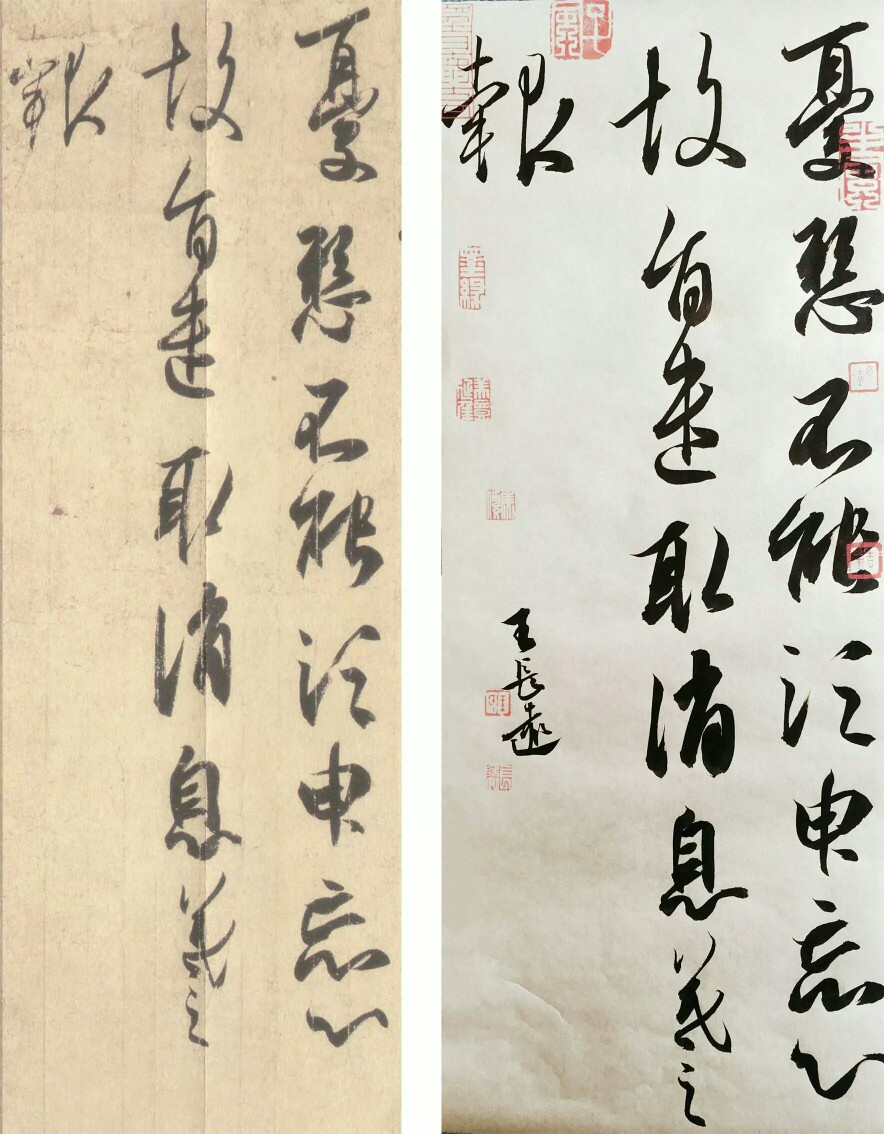 憂懸不能須臾忘心
故旨遣取消息羲之
報
憂懸不能須臾忘心
故旨遣取消息羲之
報
王長遠
墨緣